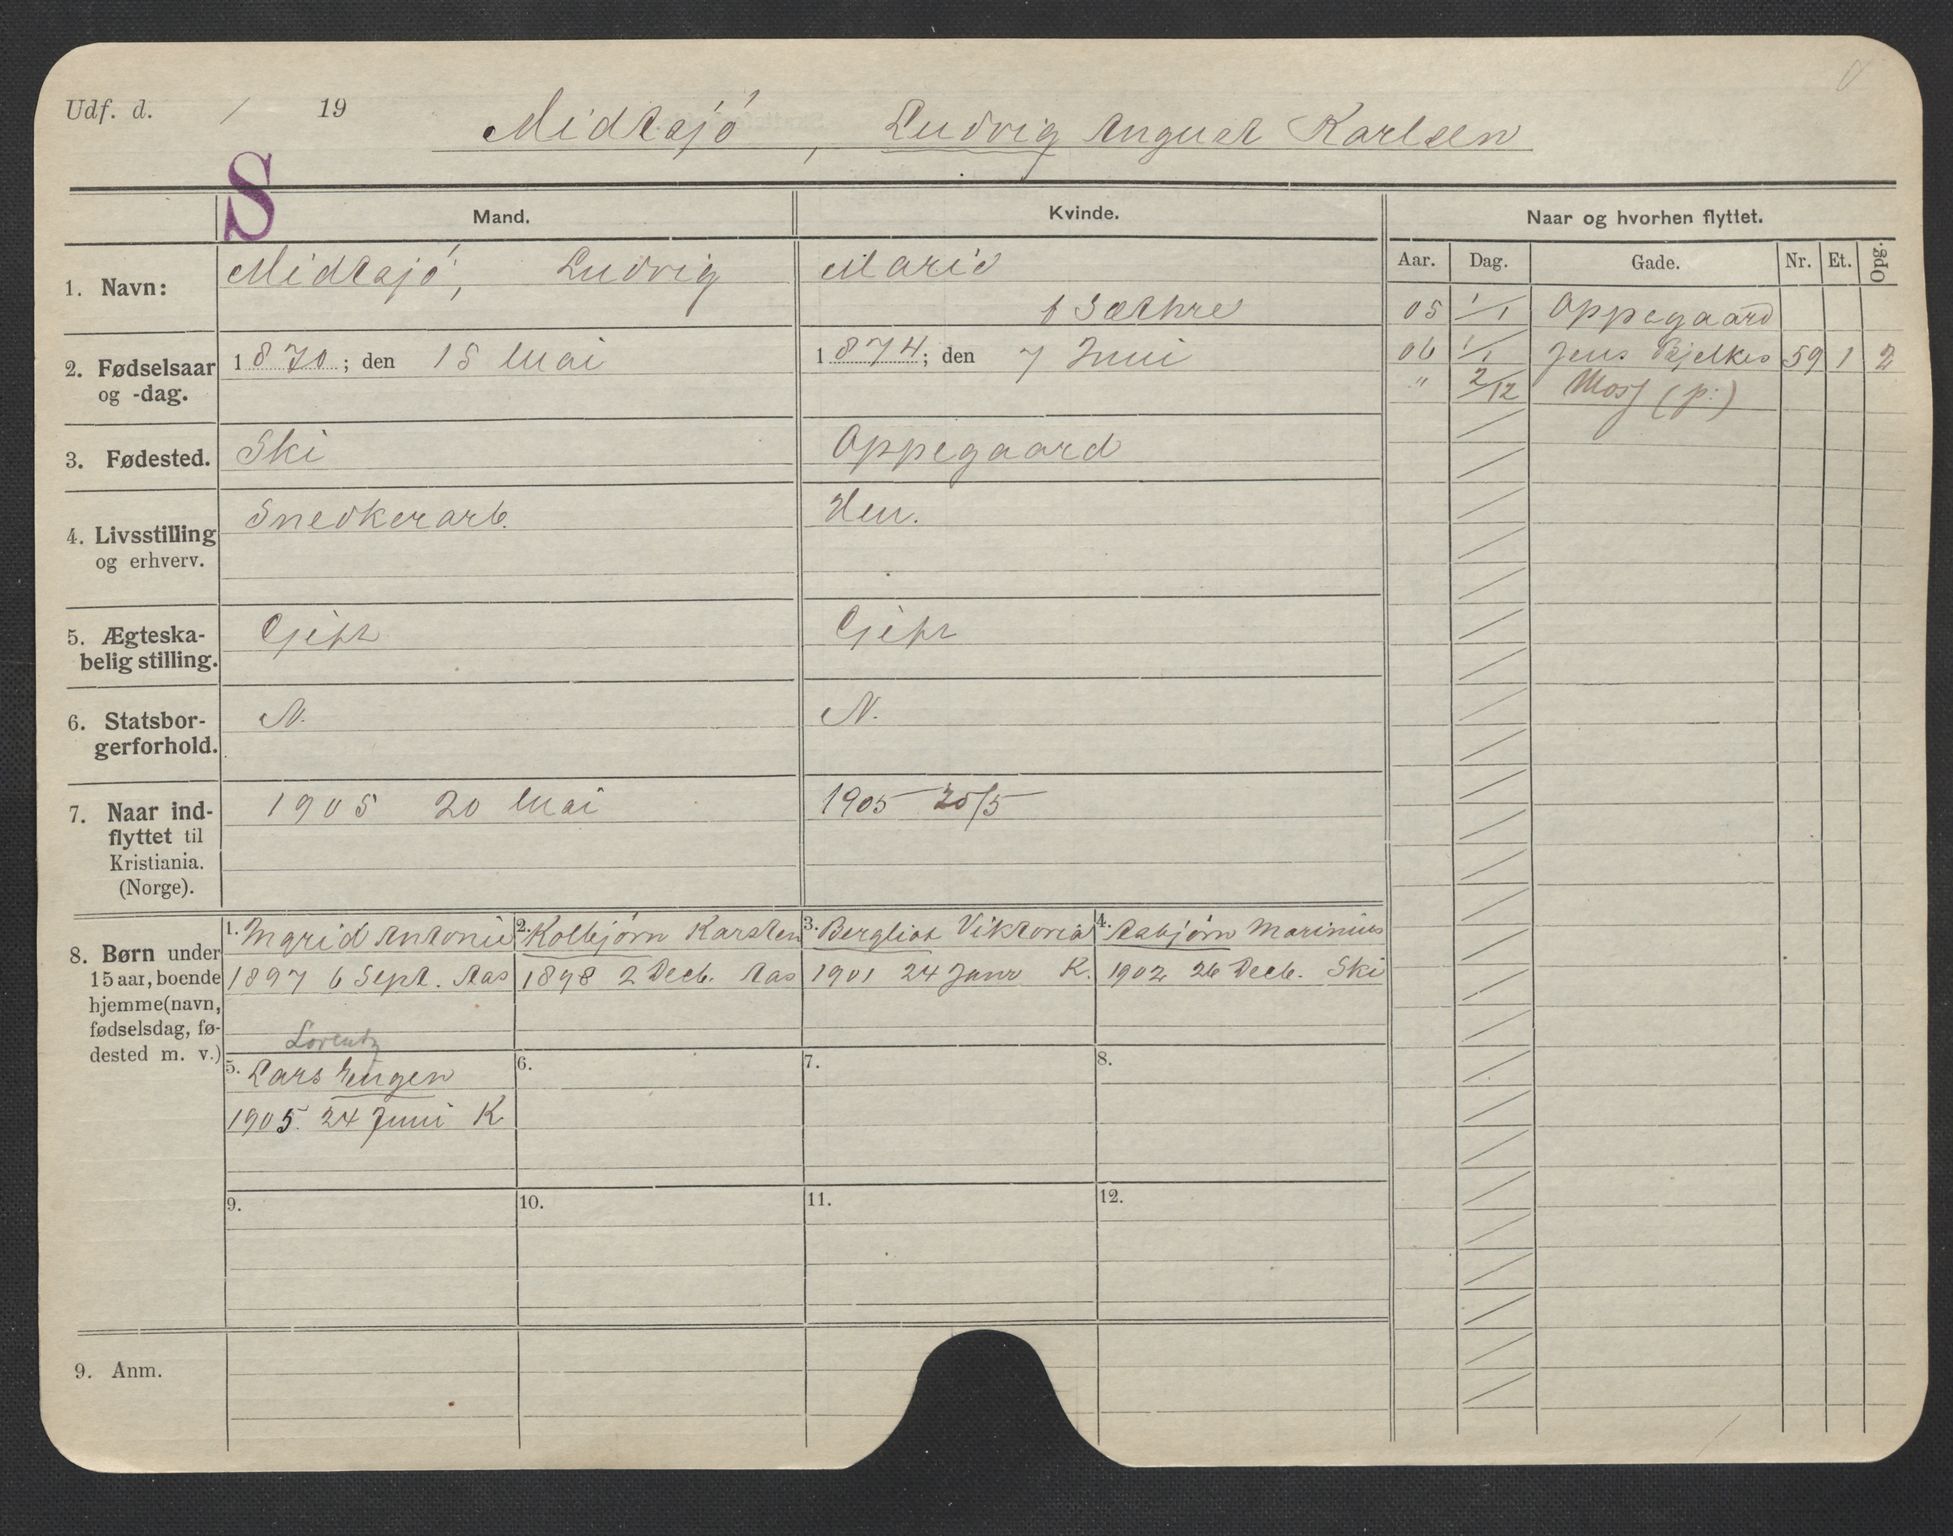 Udf. d. / 19
Midtsjö, Ludvig August Karlsen
S
Mand. Kvinde. Naar og hvorhen flyttet.
Aar. Dag. Gade. Nr. Et. Opg.
1. Navn: Midtsjö, Ludvig Marie
f Sæthre
05 1/1 Oppegaard
2. Fødselsaar og -dag. 1870; den 15 Mai 1874; den 7 Juni
06 1/1 Jens Bjelkes 59 1 2
" 2/12 Moss (p:)
3. Fødested. Ski Oppegaard
4. Livsstilling og erhverv. Snedkerarb. Hu.
5. Ægteska-
belig stilling. Gift Gift
6. Statsbor-
gerforhold. N. N.
7. Naar ind-
flyttet til
Kristiania.
(Norge). 1905 20 Mai 1905 20/5
8. Børn under
15 aar, boende
hjemme (navn,
fødselsdag, fø-
dested m. v.)
1. Ingrid Antonie
1897 6 Sept. Aas
2. Kolbjørn Karsten
1898 2 Decb. Aas
3. Bergliot Viktoria
1901 24 Janr K.
4. Asbjørn Marinius
1902 26 Decb. Ski
Lorentz
5. Lars Eugen
1905. 24 Juni K
6.
7.
8.
9.
10.
11.
12.
9. Anm.